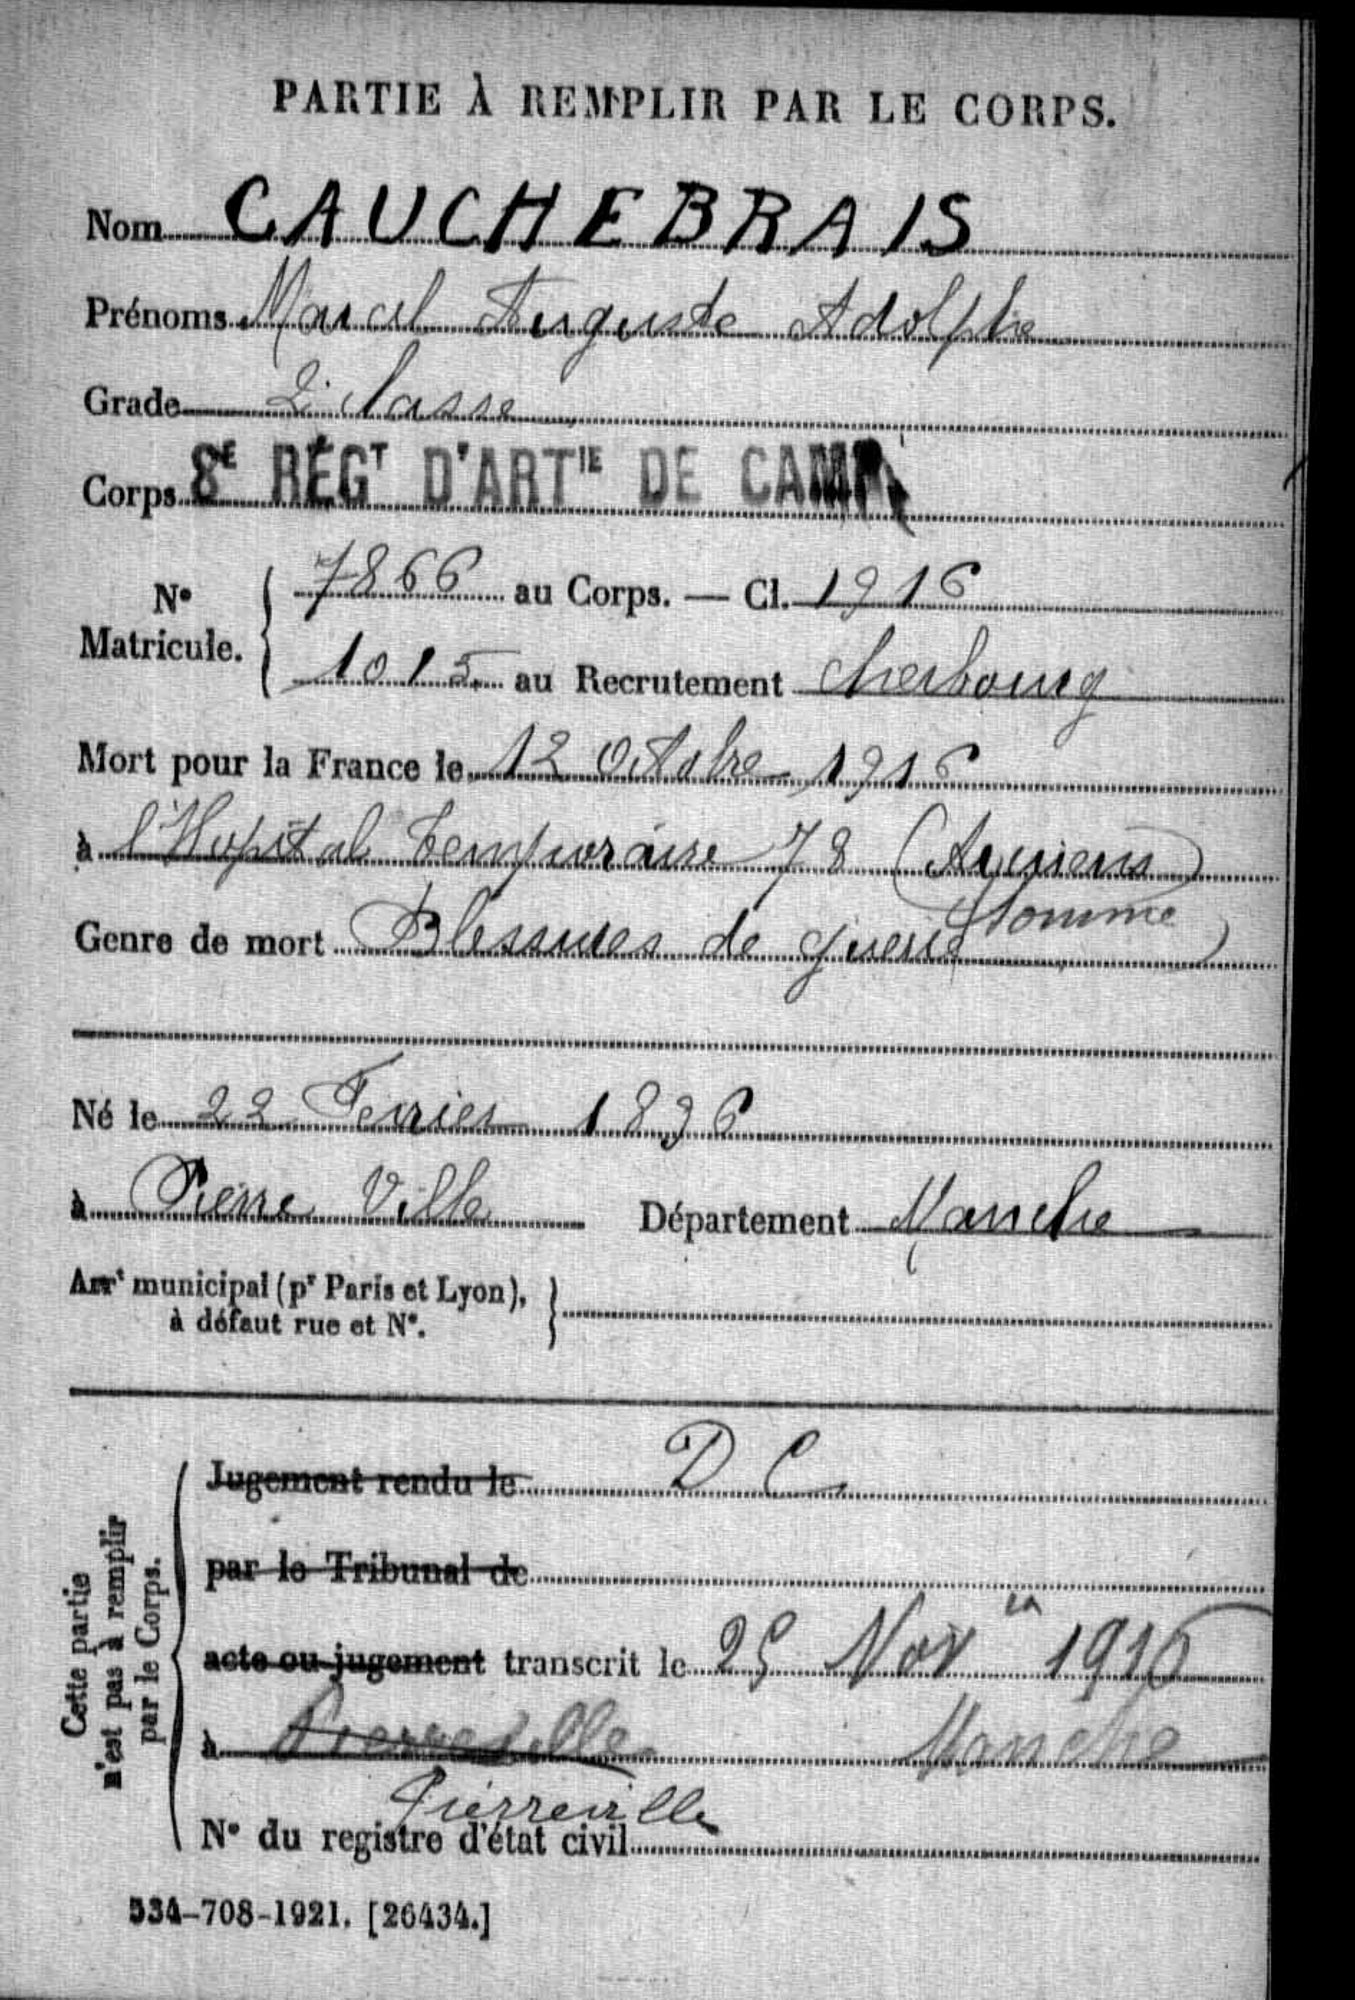 PARTIE À REMPLIR PAR LE CORPS.
Nom CAUCHEBRAIS
Prénoms Marcel Auguste Adolphe
Grade 2e classe
Corps 8E RÉGT D'ARTIE DE CAMP.
No Matricule. 7866 au Corps. — Cl. 1916
1015 au Recrutement Cherbourg
Mort pour la France le 12 Octobre 1916
à l'Hopital temporaire 78 (Amiens
Somme)
Genre de mort Blessures de guerre
Né le 22 Fevrier 1896
à Pierre Ville Département Manche
Arrt municipal (pr Paris et Lyon),
à défaut rue et No.
Cette partie
n'est pas à remplir
par le Corps.
Jugement rendu le D C
par le Tribunal de
acte ou jugement transcrit le 25 Nov 1916
à Pierreville Manche
Pierreville
No du registre d'état civil
534-708-1921. [26434.]